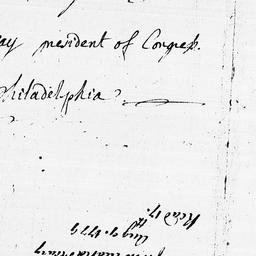 president of Congress.
Philadelphia
Read 17.th
Augt. 1779